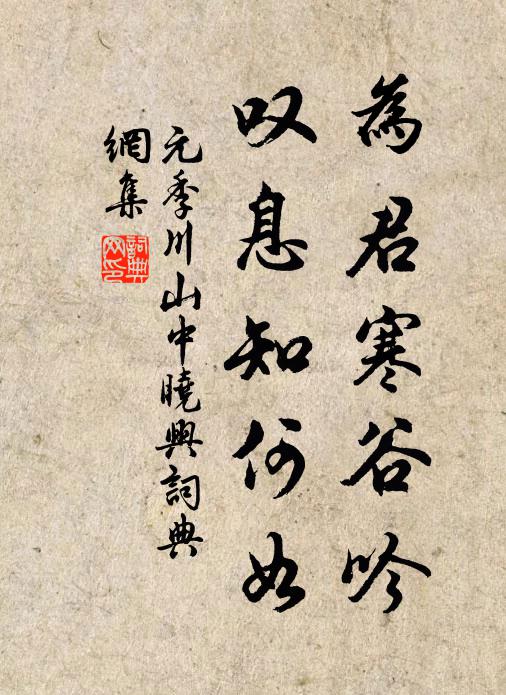 為君寒谷吟
叹息知何如
元季川山中曉興詞典
網集
詞典
网印